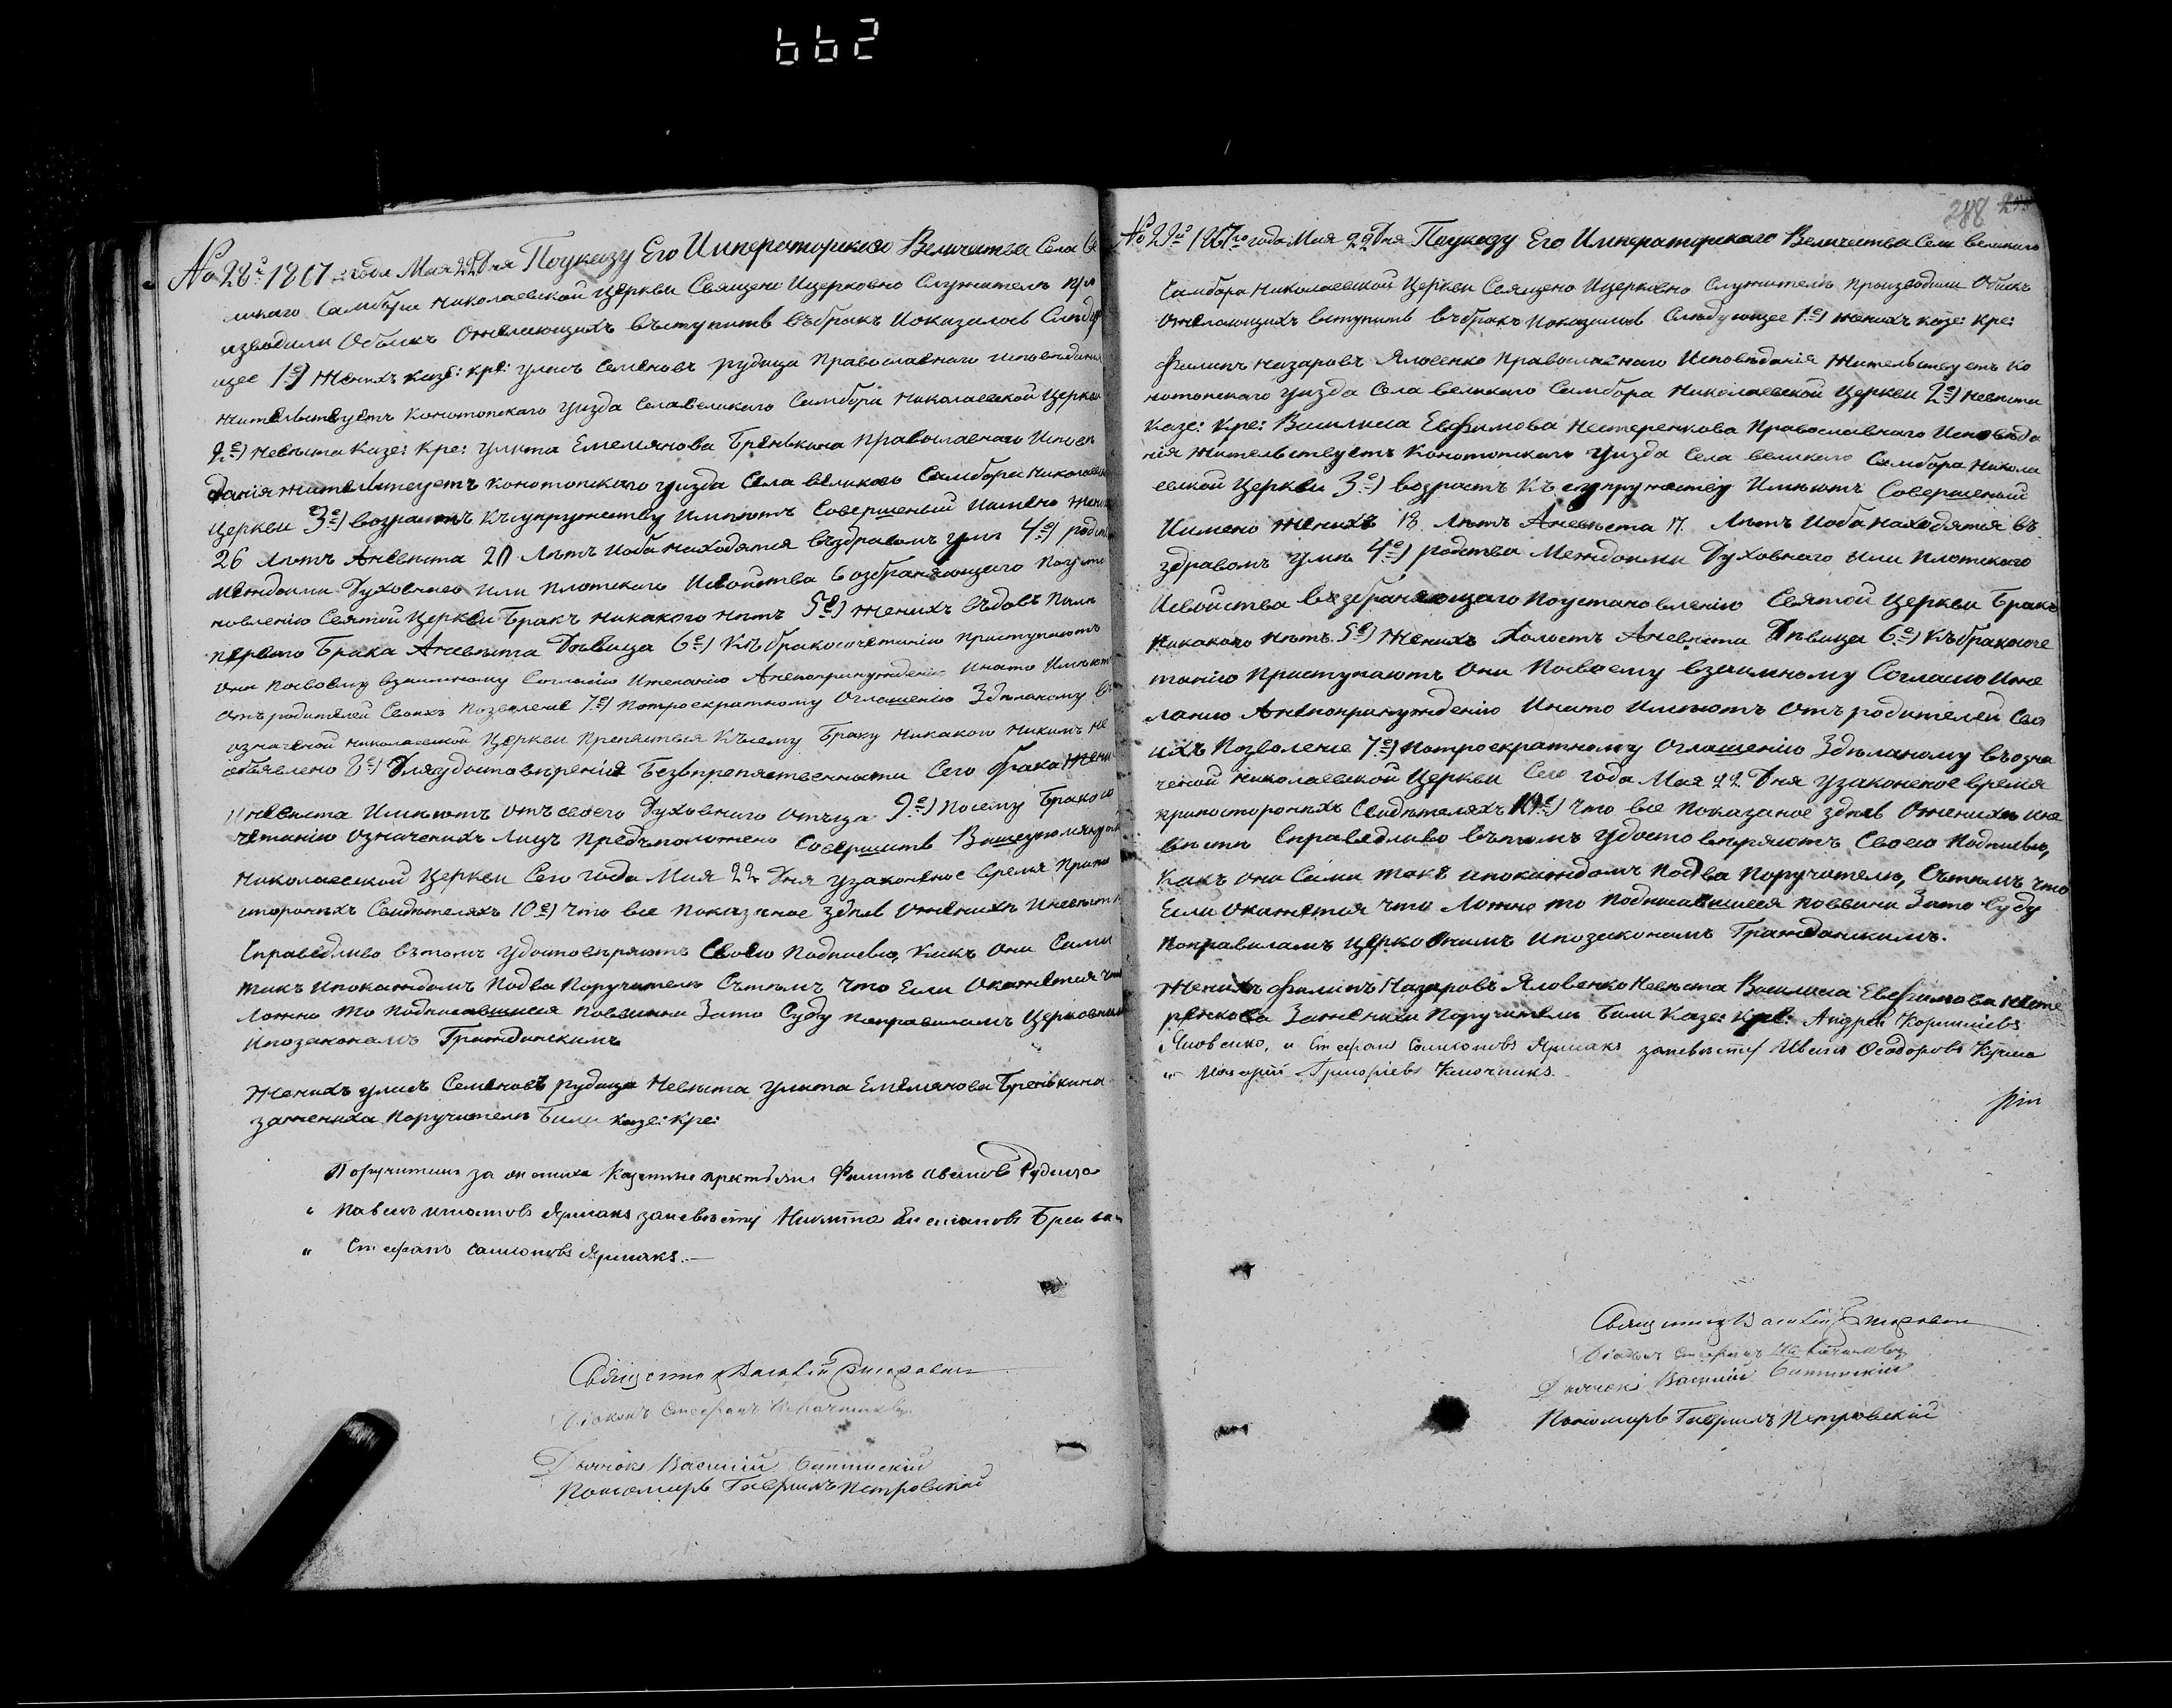 662
№ 28й 1867 года Мая 22 Дня Поуказу Его Императорскаго Величества Села Ве
ликаго Самбура Николаевской Церкви Священо Ицерковно Служители про
изводили Обыскъ Ожелающихъ вступить вбракъ Иоказалось Следую
щее 1е) Женихъ казе: кре: Семеновъ рудица Православнаго исповеданія
жительствуетъ Конотопскаго уизда Села великаго Самбура Николаевской Церкви
2е) Невъста Казе: Кре: Улита Емелянова Бренькина Православнаго Испов
данія жительствуетъ Конотопскаго уизда Села великаго Самбура Николаевской
Церкви 3е) возрастъ Ксупружеству Имъютъ Совершеный Иимено жених
26 лътъ Аневъста 20 Лътъ Иоба находятся въздравомъ умъ 4е) родства
междоими Духовнаго или плотскаго Исвойства возбраняющаго Поуста
новленію Святой Церкви Бракъ никакого нътъ 5е) женихъ въдовъ Послъ
перваго Брака Аневъста Дъвица 6е) Къбракосочетанію приступаютъ
они Посвоему взаимному Согласію Ижеланію Анепопринужденію Инато Имъют
отъ родителей Своихъ Позволеніе 7е) Потроекратному Оглашенію Здъланому въ
означеной николаевской Церкви Препятствія Късему Браку Никакого Никимъ не
объявлено 8е) Дляудостовъренія Безвпрепяственности Сего брака жени
Иневъста Имъютъ отъ своего Духовнаго отъца 9е) Посему Бракосо
четанію означеныхъ лицъ Предъположено Совершить Ввышеупомянутой
Николаевской Церкви Сего года Мая 22 Дня узаконеное время Припо
стороныхъ Свидътеляхъ 10е) что все Показаное здъсь Оженихъ Иневъстъ
Справедливо вътомъ удостовъряютъ Своею Подписью, Какъ они Сами
такъ ипокаждомъ Подва Поручителъ Сътъмъ что Если Окажется что
ложно то Подписавшиеся Повинни Зато Суду поправиламъ Церковным
Ипозаконамъ Гражданскимъ
Женихъ Семеновъ рудица Невъста улита Емелянова Бренькина
зажениха Поручителъ Были казе: кре:
Поручители за жениха Казенные крестьяне Филипъ Ивановъ Рудица
" Павелъ Ярмакъ заневъсту Никита Бренька
" Стефанъ Самсоновъ Ярмакъ.—
Священникъ Василій
Діаконъ Стефанъ
Дьячокъ Василій
Пономарь Гавриилъ Петровскій
288
№ 29й 1867го года Мая 22 Дня Поуказу Его Императорскаго Величества Села великаго
Самбура Николаевской Церкви Священо Ицерковно Служителъ Производили Обыскъ
Ожелающихъ вступить вбракъ Иоказалось Слъдующее 1е) женихъ казе: кре:
Филипъ Назаровъ Яловенко Православнаго Исповъданія Жительствуетъ Ко
нотопскаго уизда Села великаго Самбура Николаевской Церкви 2е) Невъста
Казе: Кре: Василиса Евфимова Нестеренкова Православнаго Исповъда
нія Жительствуетъ Конотопскаго уизда Села великаго Самбура Никола
евской Церкви 3е) возрастъ Къ супружеству Имъютъ Совершеный
Иимено Женихъ 18 лътъ Аневъста 17 Лътъ Иоба находятся въ
здравомъ умъ 4е) родства Междоими Духовнаго или плотскаго
Исвойства возбраняющаго Поустановленію Святой Церкви Бракъ
Никакого Нътъ 5е) Женихъ Холостъ Аневъста Дъвица 6е) Къбракосоче
танію Приступаютъ Они Посвоему взаимному Согласію Иже
ланію Анепопринужденію Инато Имъютъ Отъ родителей Сво
ихъ Позволеніе 7е) Потроекратному Оглашенію Здъланому въозна
ченой Николаевской Церкви Сего года Мая 22 Дня узаконеное время
припостороныхъ Свидътеляхъ 10е) что все Показаное здъсь Оженихъ Ине
въстъ Справедливо вътомъ удостовъряютъ Своею Подписью,
Какъ они Сами такъ ипокаждомъ Подва Поручителъ, Сътъмъ что
Если Окажется что Ложно то Подписавшиеся Повинни Зато Суду
Поправиламъ Церковнымъ Ипозаконамъ Гражданскимъ.
Женихъ Филипъ Назаровъ Яловенко Невъста Василиса Евфимова Несте
ренкова Зажениха Поручители Были Казе: Кре: Андрей
Яловенко, и Стефанъ Самсоновъ Ярмакъ заневъсту Иванъ Феодоровъ
и Григоріевъ Ключникъ.
Священникъ Василій
Діаконъ Стефанъ
Дьячокъ Василій
Пономарь Гавриилъ Петровскій